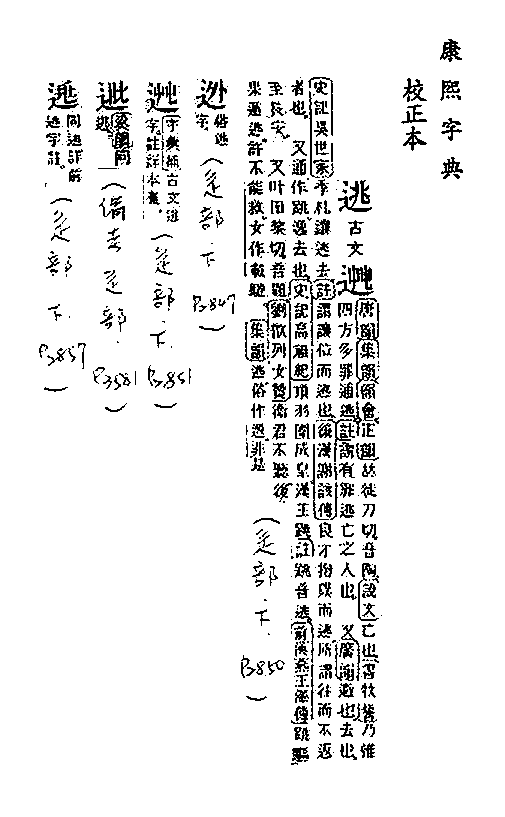 康熙字典
校正本
逃 古文 𨔇
唐韻集韻韻會正韻𠀤徒刀切音陶說文亡也書牧誓乃惟
四方多罪逋逃註謂有罪逃亡之人也 又廣韻避也去也
史記吳世家季札讓逃去註謂讓位而逃也後漢謝該傳良才抱璞而逃所謂往而不返
者也 又通作跳逸去也史記高祖紀項羽圍成臯漢王跳註跳音逃前漢燕王澤傳跳驅
至長安 又叶田黎切音題劉歆列女贊衞君不聽後
果遁逃許不能救女作載馳 集韻逃俗作迯非是
(辵部.下. P.850)
迯 俗逃字
(辵部.下 P.847)
字彙補古文逃
字註詳本畫
(辵部.下. P.851)
篇韻同
逃
(備考辵部. P.1581)
同逃詳前
逃字註
(辵部.下. P.857)